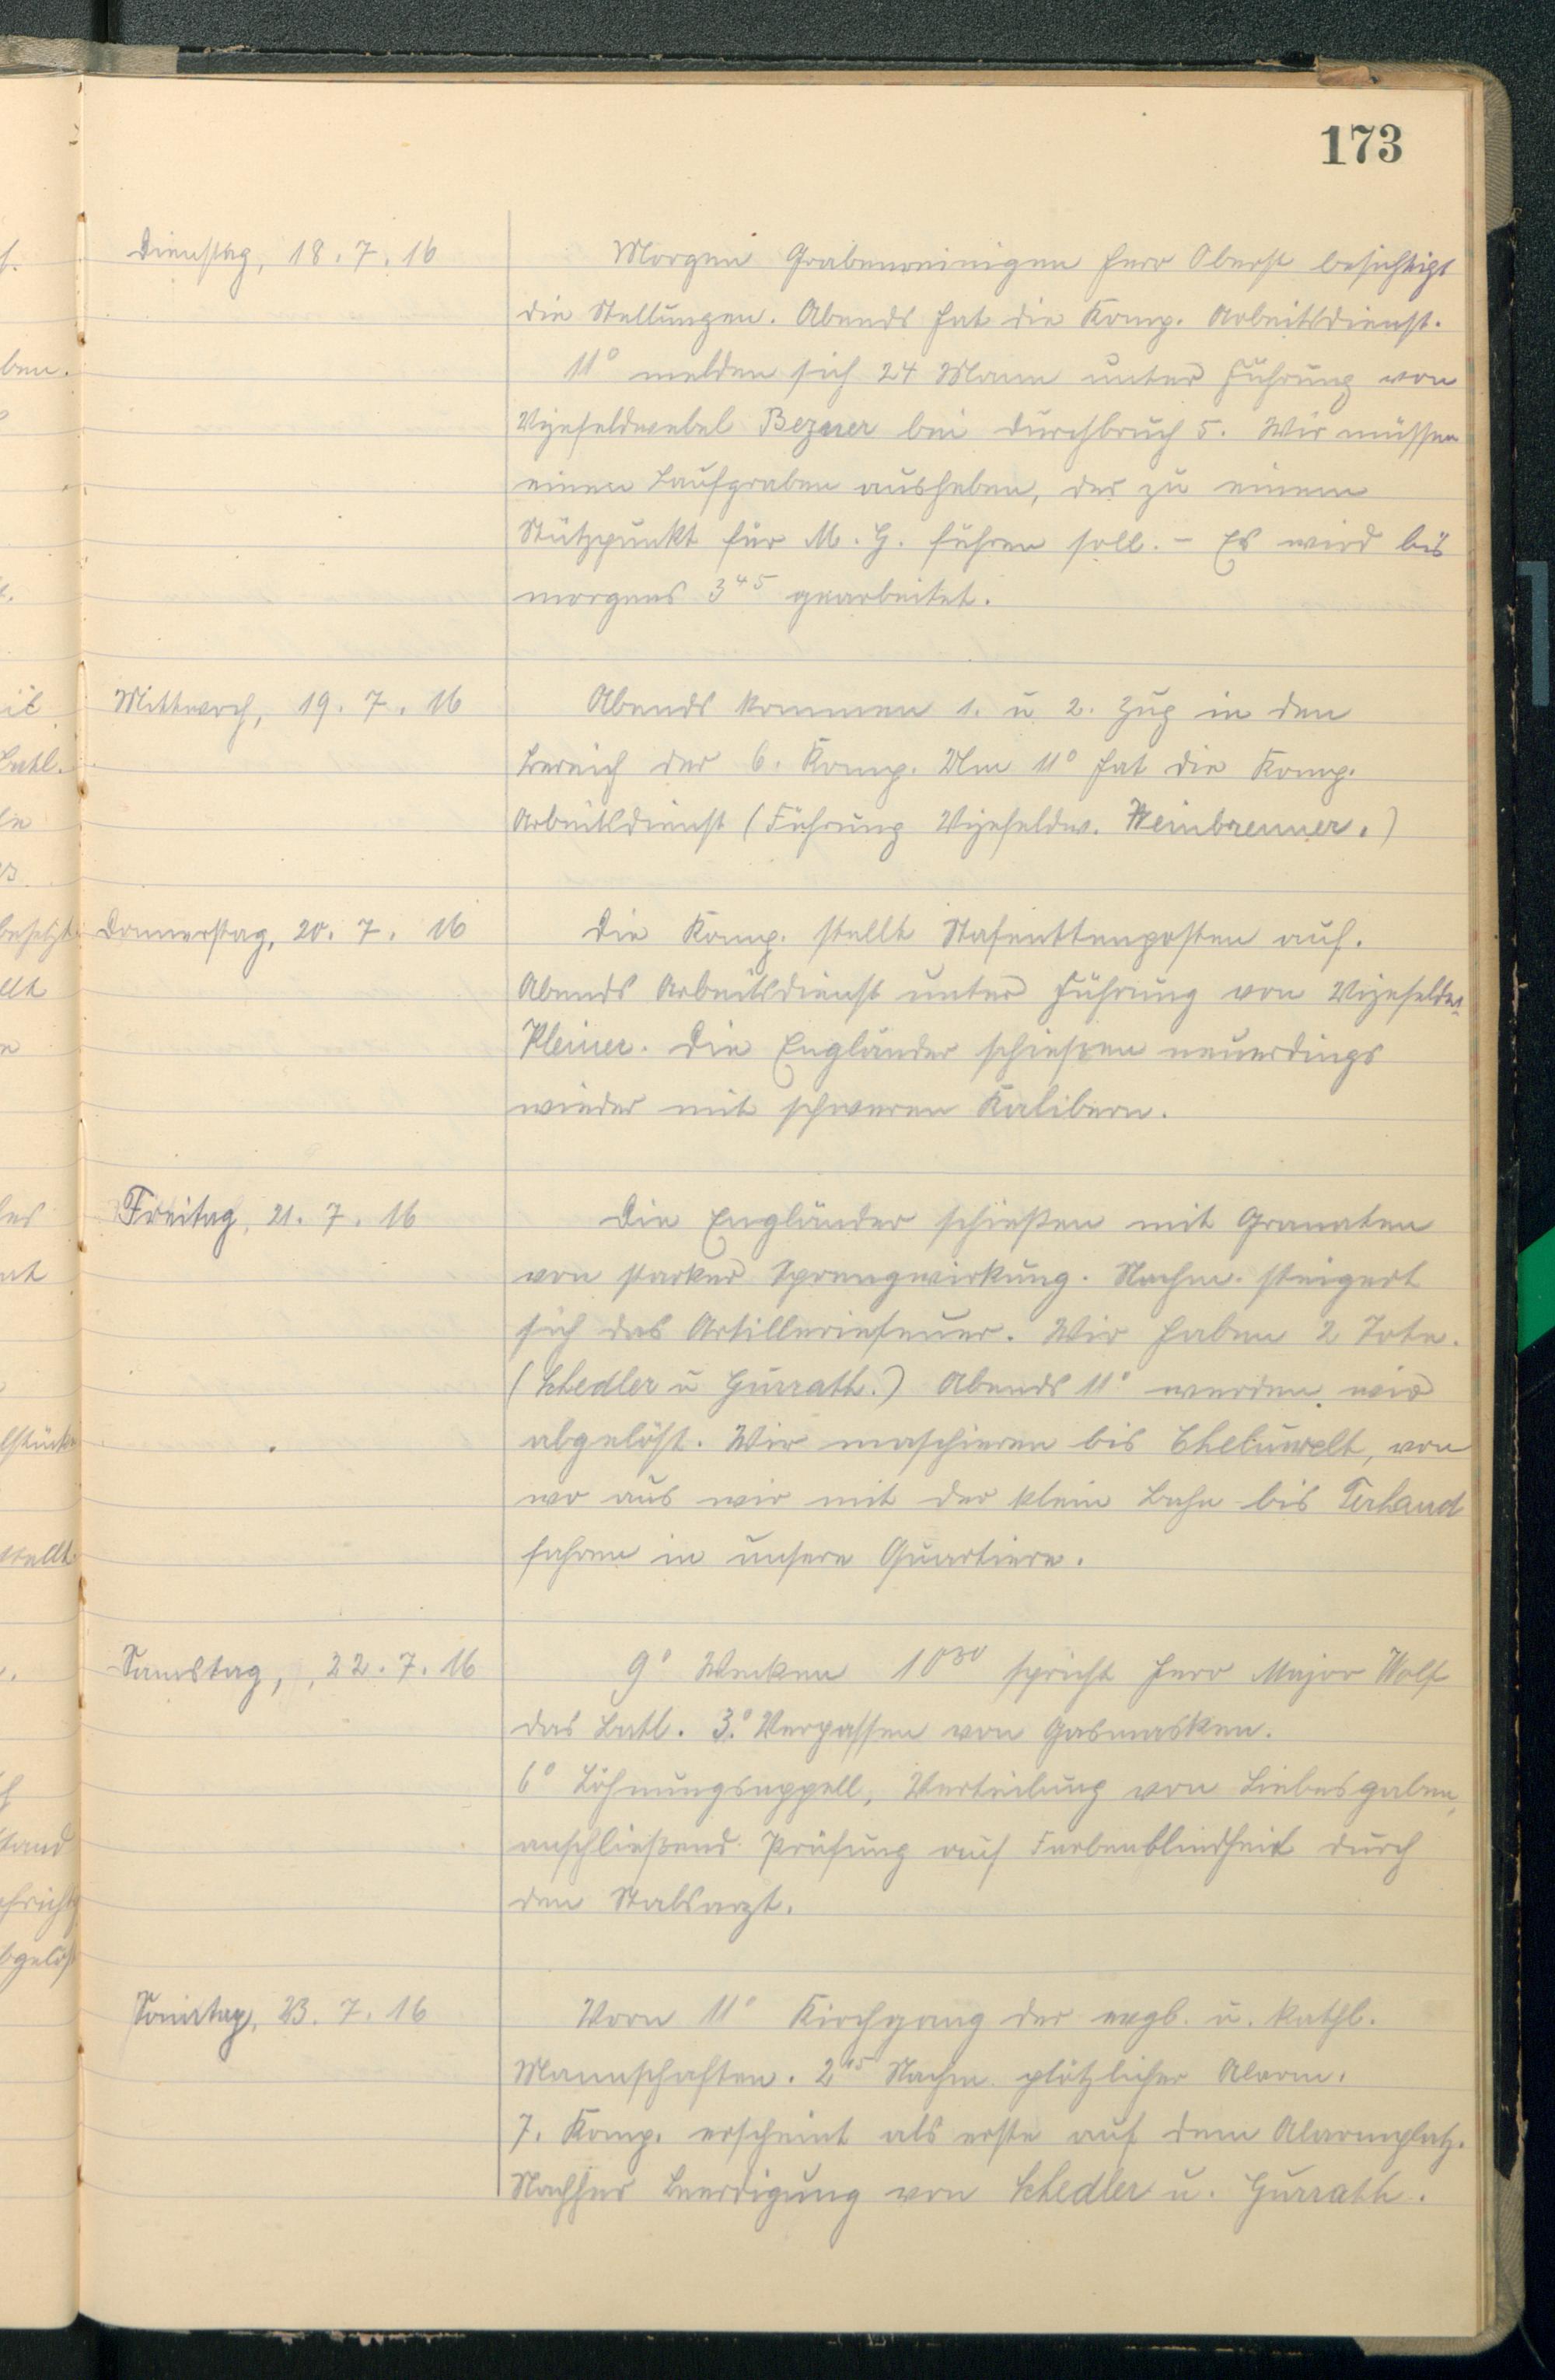 173
Dienstag, 18. 7. 16
Morgen Grabenreinigen Herr Oberst besichtigt
die Stellungen. Abends hat die Komp. Arbeitsdienst.
11⁰ melden sich 24 Mann unter Führung von
Vizefeldwebel Bezner bei Durchbruch 5. Wir müssen
einen Laufgraben ausheben, der zu einem
Stützpunkt für M. G. führen soll. - Es wird bis
morgens 3⁴⁵ gearbeitet.
Mittwoch, 19. 7. 16
Abends kommen 1. u 2. Zug in den
Bereich der 6. Komp. Um 11⁰ hat die Komp.
Arbeitsdienst (Führung Vizefeldw. Weinbrenner.)
Donnerstag, 20. 7. 16
Die Komp. stellt Stafettenposten auf.
Abends Arbeitsdienst unter Führung von Vizefeldw.
Kleiner. Die Engländer schießen neuerdings
wieder mit schweren Kalibern.
Freitag, 21. 7. 16
Die Engländer schießen mit Granaten
von starker Sprengwirkung. Nachm. steigert
sich das Artilleriefeuer. Wir haben 2 Tote.
(Schedler u Gurrath.) Abends 11⁰ werden wir
abgelöst. Wir maschieren bis Gheluwelt, von
wo aus wir mit der klein Bahn bis Terhand
fahren in unsere Quartiere.
Samstag, 22. 7. 16
9⁰ Wecken 10³⁰ spricht Herr Major Wolf
das Batl. 3.⁰ Verpassen von Gasmasken.
6⁰ Löhnungsappell, Verteilung von Liebesgaben,
anschließend Prüfung auf Farbenblindheit durch
den Stabsarzt.
Sonntag, 23. 7. 16
Vorm 11⁰ Kirchgang der evgl. u. kathl.
Mannschaften. 2¹⁵ Nachm. plötzlicher Alarm.
7. Komp. erscheint als erste auf dem Alarmplatz.
Nachher Beerdigung von Schedler u. Gurrath.